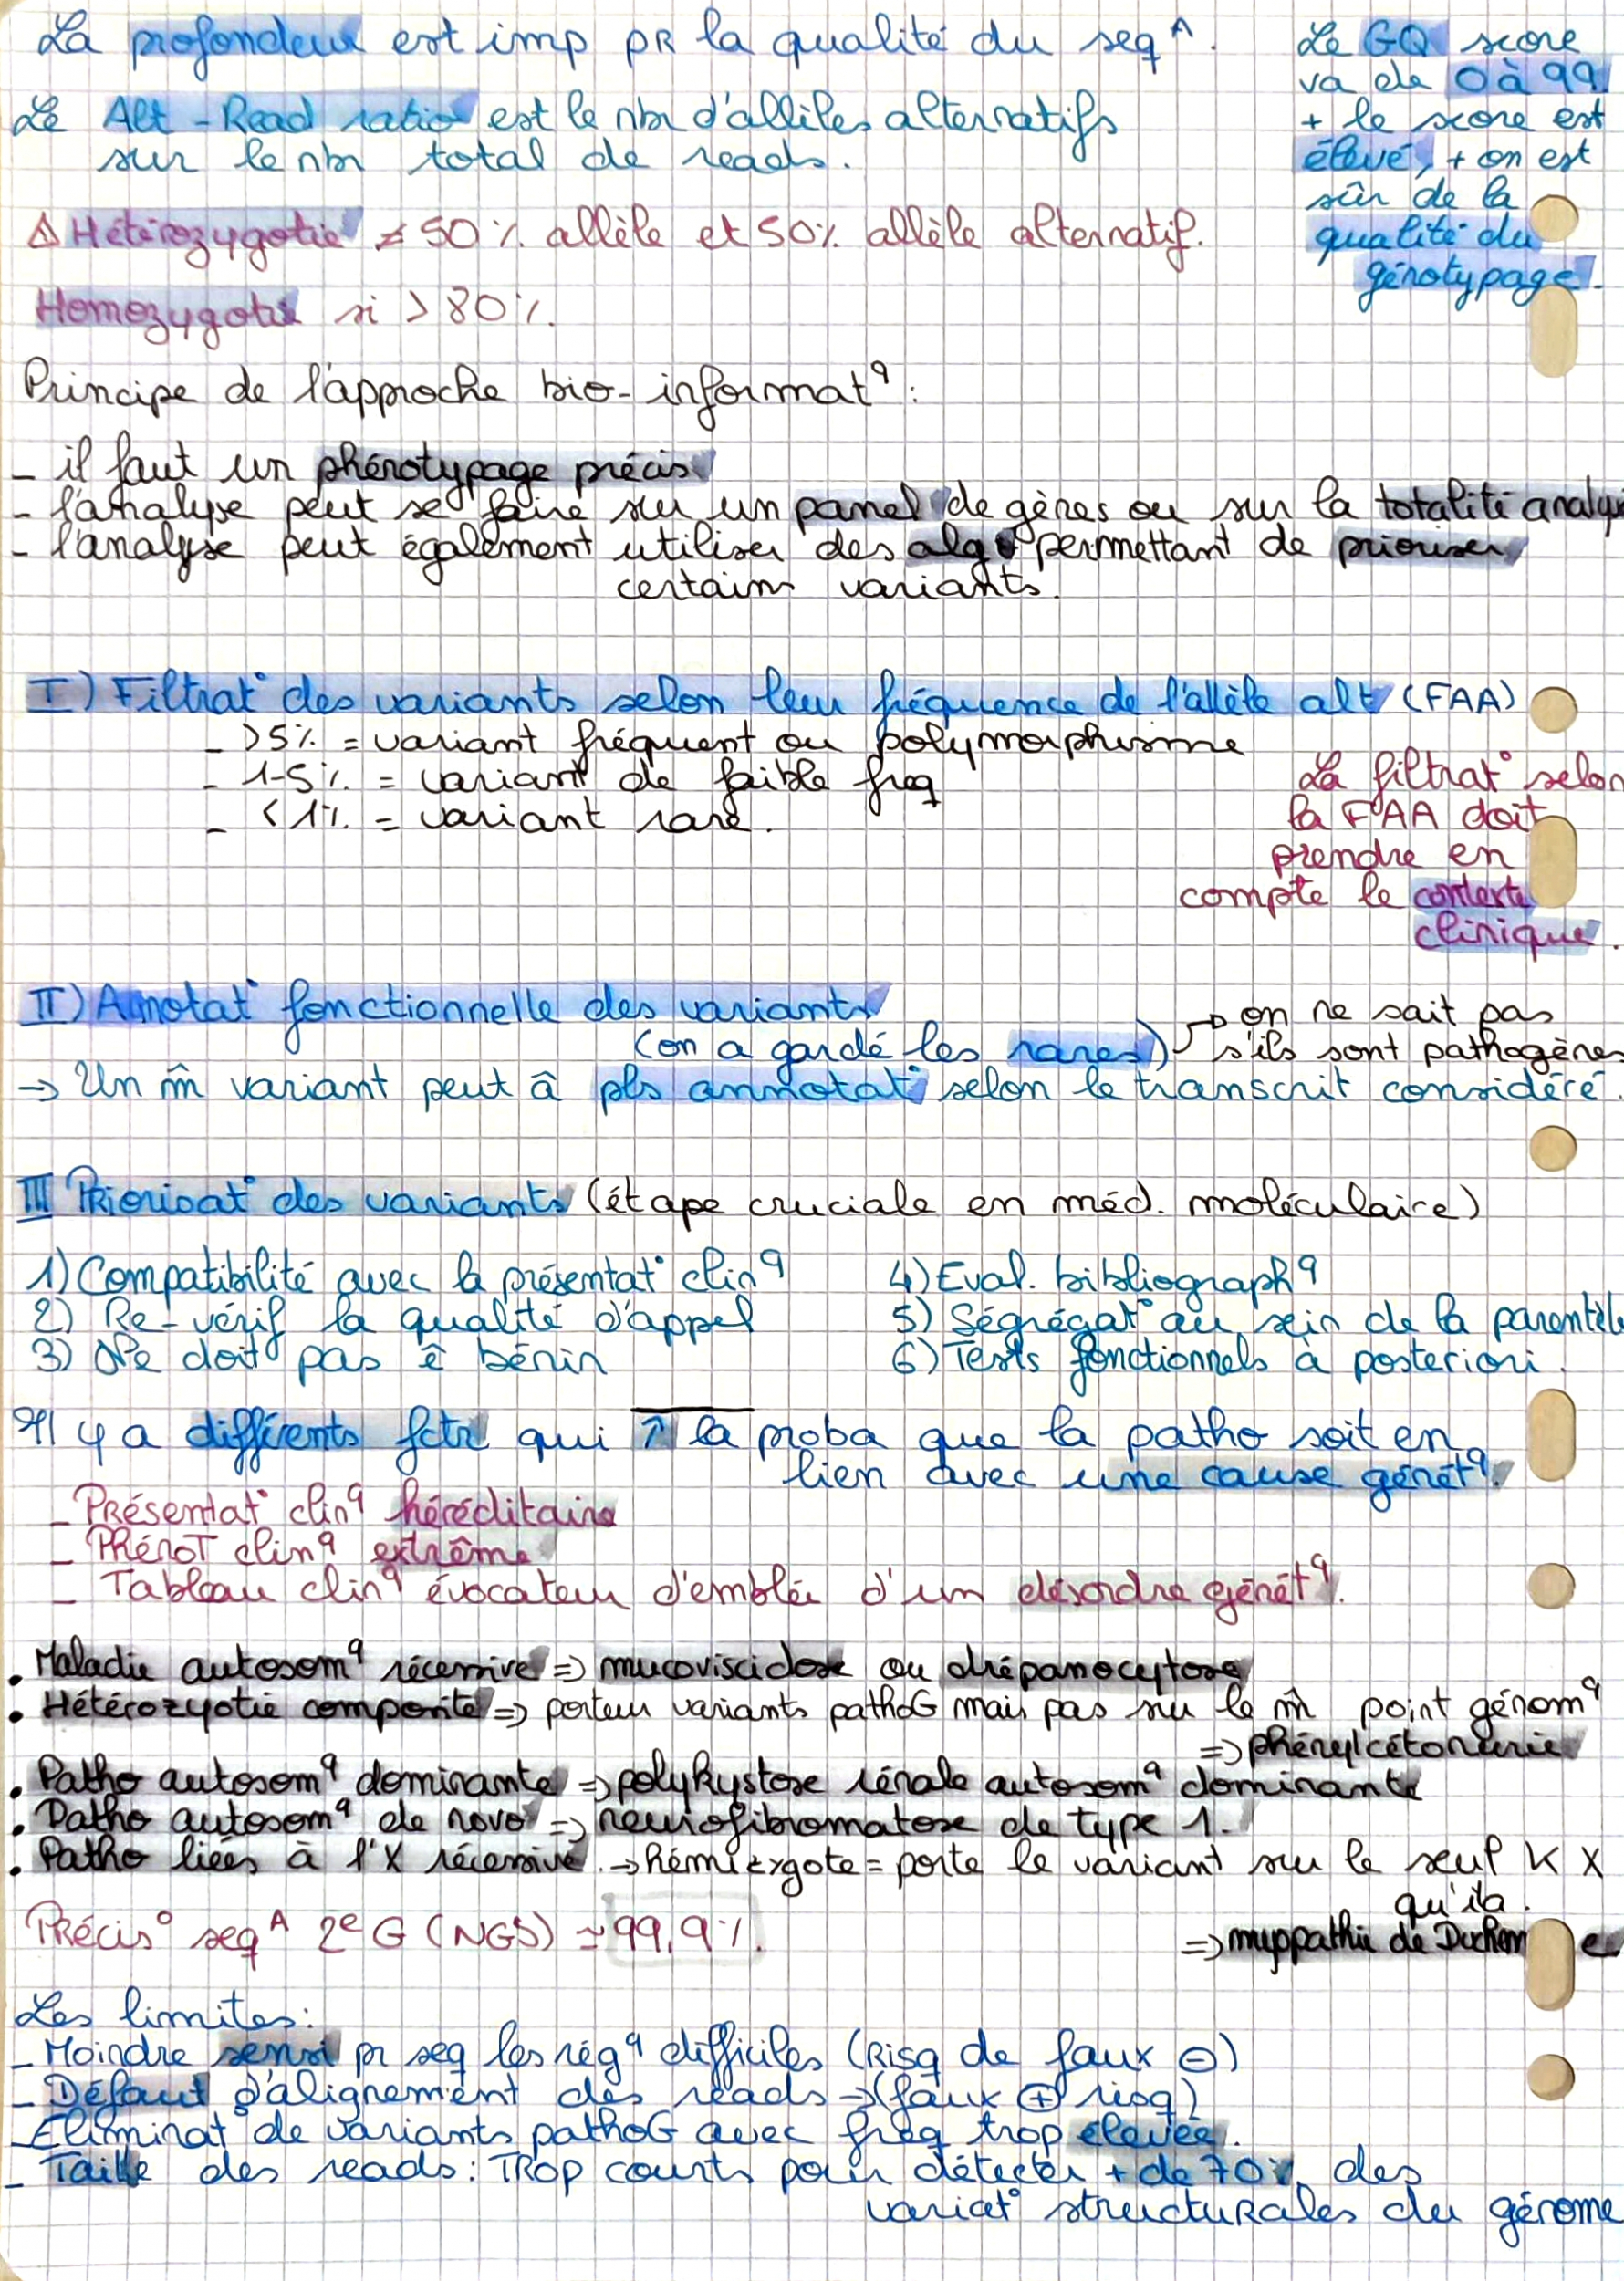 La profondeur est imp pR la qualité du seq^A.
Le Alt-Read ratio est le nbr d'allèles alternatifs
sur le nbr total de reads.
Le GQ score
va de 0 à 99
+ le score est
élevé, + on est
sûr de la
qualité du
génotypage.
⚠ Hétérozygotie ≠ 50% allèle et 50% allèle alternatif.
Homozygotie si > 80%.
Principe de l'approche bio-informat^q :
- il faut un phénotypage précis
- l'analyse peut se faire sur un panel de gènes ou sur la totalité analys
- l'analyse peut également utiliser des algo permettant de prioriser
certains variants.
I) Filtrat° des variants selon leur fréquence de l'allèle alt (FAA)
- >5% = variant fréquent ou polymorphisme
- 1-5% = variant de faible freq
- <1% = variant rare.
La filtrat° selon
la FAA doit
prendre en
compte le contexte
clinique.
II) Annotat° fonctionnelle des variants
(on a gardé les rares) → on ne sait pas
s'ils sont pathogènes
→ Un m̂ variant peut â pls annotat° selon le transcrit considéré.
III Priorisat° des variants (étape cruciale en méd. moléculaire)
1) Compatibilité avec la présentat° clin^q
2) Re-vérif la qualité d'appel
3) Ne doit pas ê bénin
4) Eval. bibliograph^q
5) Ségrégat° au sein de la parentèle
6) Tests fonctionnels à posteriori.
Il y a différents fctr qui ↑ la proba que la patho soit en
lien avec une cause génét^q.
- Présentat° clin^q héréditaire
- PhénoT clin^q extrême
- Tableau clin^q évocateur d'emblée d'un désordre génét^q.
• Maladie autosom^q récessive => mucoviscidose ou drépanocytose
• Hétérozyotie composite => porteur variants pathoG mais pas sur le m̂ point génom^q
=> phénylcétonurie
• Patho autosom^q dominante => polykystose rénale autosom^q dominante
• Patho autosom^q de novo => neurofibromatose de type 1.
• Patho liées à l'X récessive. → hémizygote = porte le variant sur le seul K X
qu'il a.
=> myopathie de Duchenne
Précis° seq^A 2e G (NGS) ≃ 99,9%.
Les limites:
- Moindre sensi pr seq les rég^q difficiles (Risq de faux ⊖)
- Défaut d'alignement des reads → (faux ⊕ risq)
- Eliminat° de variants pathoG avec freq trop élevée.
- Taille des reads : TRop courts pour détecter + de 70% des
variat° structurales du génome